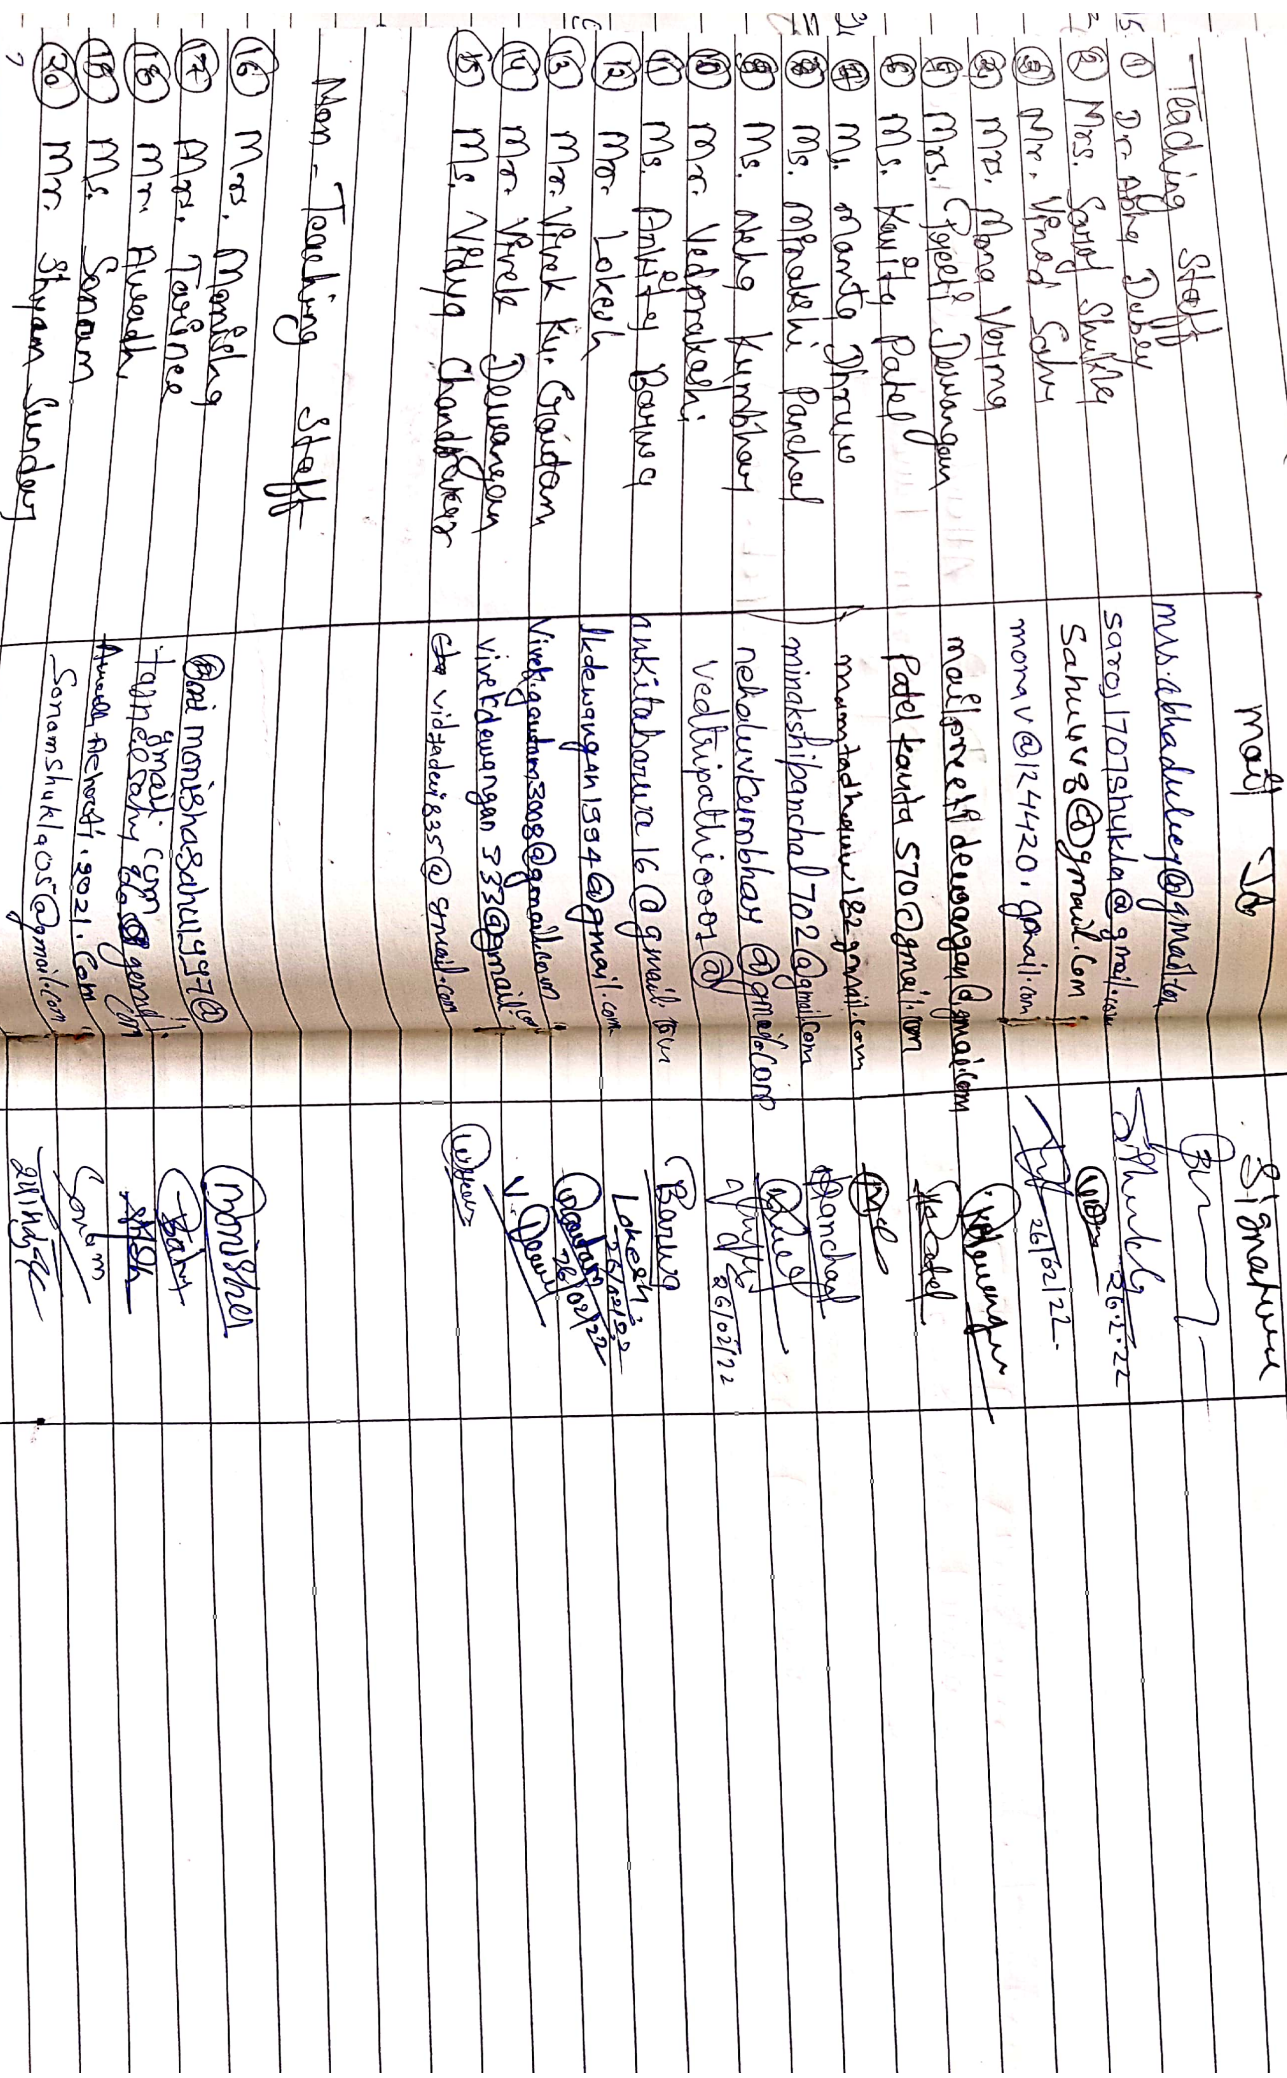 Teaching Staff Mail Id Signature
① Dr. Abha Dubey mrs.abhadubey@gmail.com
② Mrs. Saroj Shukla saroj1707shukla@gmail.com Shukla 26.2.22
③ Mr. Vinod Sahu Sahu4v8@gmail.com
④ Mrs. Mona Verma monav@124420.gmail.com 26/02/22
⑤ Mrs. Preeti Dewangan mailpreetidewangan@gmail.com
⑥ Ms. Kavita Patel Patel kavita 570@gmail.com Patel
⑦ Ms. Mamta Dhruw mamtadhruw182gmail.com
⑧ Ms. Minakshi Panchal minakshipanchal702@gmail.com Panchal
⑨ Ms. Neha Kumbhar nehaluvkumbhar@gmail.com
⑩ Mr. Vedprakash vedtripathi0001@ 26/02/22
⑪ Ms. Ankita Barwa ankitabarwa16@gmail.com Barwa
⑫ Mr. Lokesh lkdewangan1994@gmail.com Lokesh 26/02/22
⑬ Mr. Vivek Ku. Gaitam Vivek.gautam3008@gmail.com Gautam 26/02/22
⑭ Mr. Vivek Dewangan vivekdewangan333@gmail.com
⑮ Ms. Vidya Chandraker vidyadevi835@gmail.com
Non-Teaching Staff
⑯ Mrs. Monisha monishasahu1997@ Monisha
⑰ Mrs. Tarinee gmail.com
⑱ Mr. Awadh
⑲ Ms. Sonam 2021.com Sonam
⑳ Mr. Shyam Sunder Sonamshukla905@gmail.com